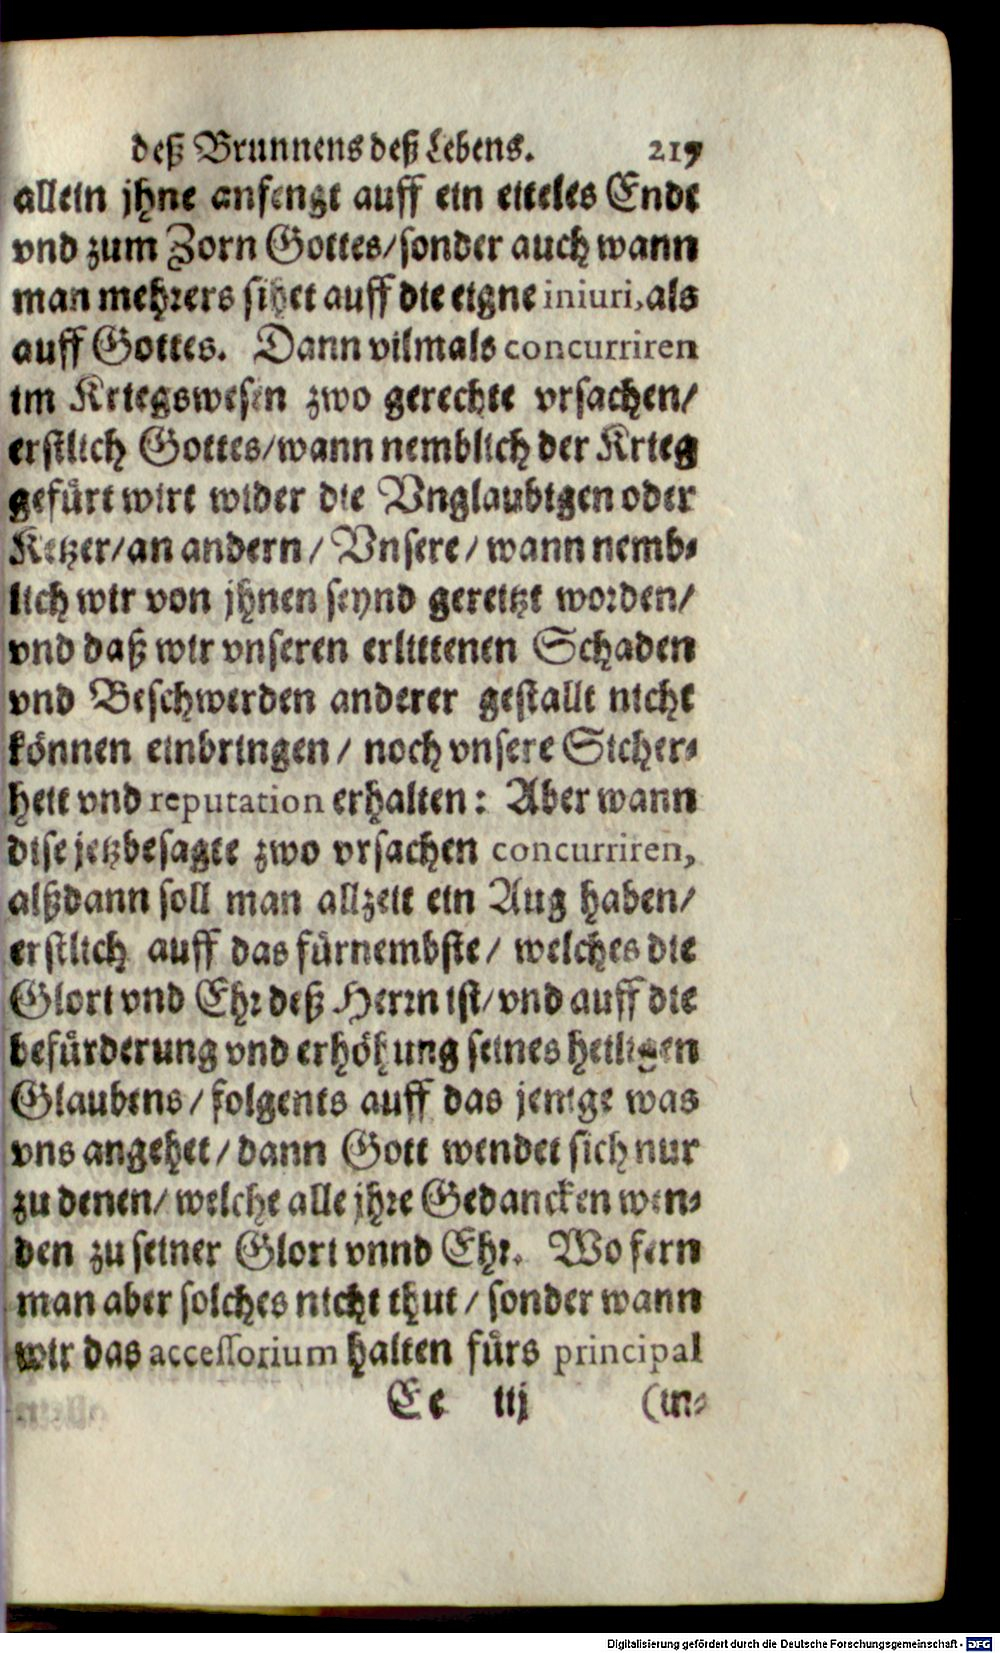 deß Brunnens deß Lebens. 219
allein jhne anfengt auff ein eiteles Ende
vnd zum Zorn Gottes/sonder auch wann
man mehrers sihet auff die eigne iniuri, als
auff Gottes. Dann vilmals concurriren
im Kriegswesen zwo gerechte vrsachen/
erstlich Gottes/wann nemblich der Krieg
gefürt wirt wider die Vnglaubigen oder
Ketzer/an andern/ Vnsere/ wann nemb-
lich wir von jhnen seynd gereitzt worden/
vnd daß wir vnseren erlittenen Schaden
vnd Beschwerden anderer gestallt nicht
können einbringen/ noch vnsere Sicher-
heit vnd reputation erhalten: Aber wann
dise jetzbesagte zwo vrsachen concurriren,
alßdann soll man allzeit ein Aug haben/
erstlich auff das fürnembste/ welches die
Glori vnd Ehr deß Herrn ist/vnd auff die
befürderung vnd erhöhung seines heiligen
Glaubens/ folgents auff das jenige was
vns angehet/ dann Gott wendet sich nur
zu denen/ welche alle jhre Gedancken wen-
den zu seiner Glori vnnd Ehr. Wo fern
man aber solches nicht thut/ sonder wann
wir das accessorium halten fürs principal
Ee iij (in-
Digitalisierung gefördert durch die Deutsche Forschungsgemeinschaft - DFG